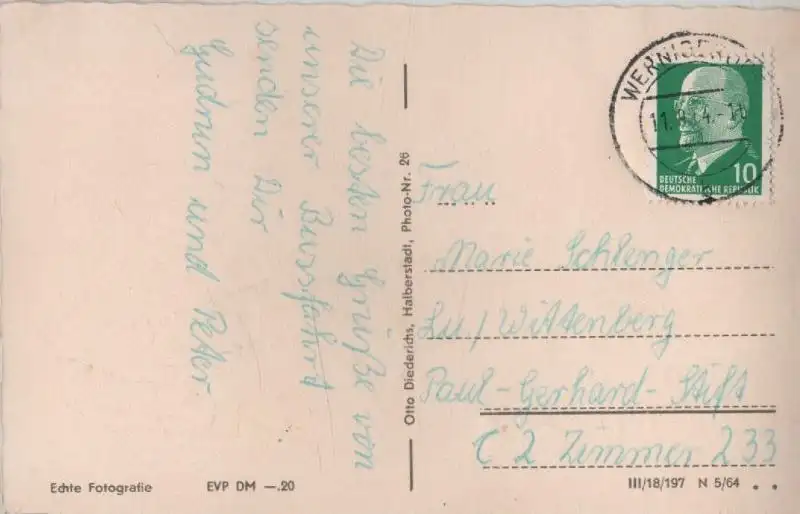 Die besten Grüße von
unserer Bussfahrt
senden Dir
Gudrun und Peter
Otto Diederichs, Halberstadt, Photo-Nr. 26
WERNIGERODE
10
DEUTSCHE
DEMOKRATISCHE REPUBLIK
Frau
Marie Schlenger
Lu./Wittenberg
Paul-Gerhard-Stift
C 2 Zimmer 233
Echte Fotografie EVP DM —.20
III/18/197 N 5/64